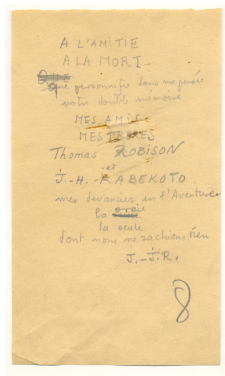 A L'AMITIE
A LA MORT
que personnifie dans ma pensée
votre double mémoire
MES AMIS
MES FRERES
Thomas ROBISON
et
J.-H. RABEKOTO
mes devanciers en l'Aventure
la
la seule
dont nous ne sachions rien
J.-J.R.
8